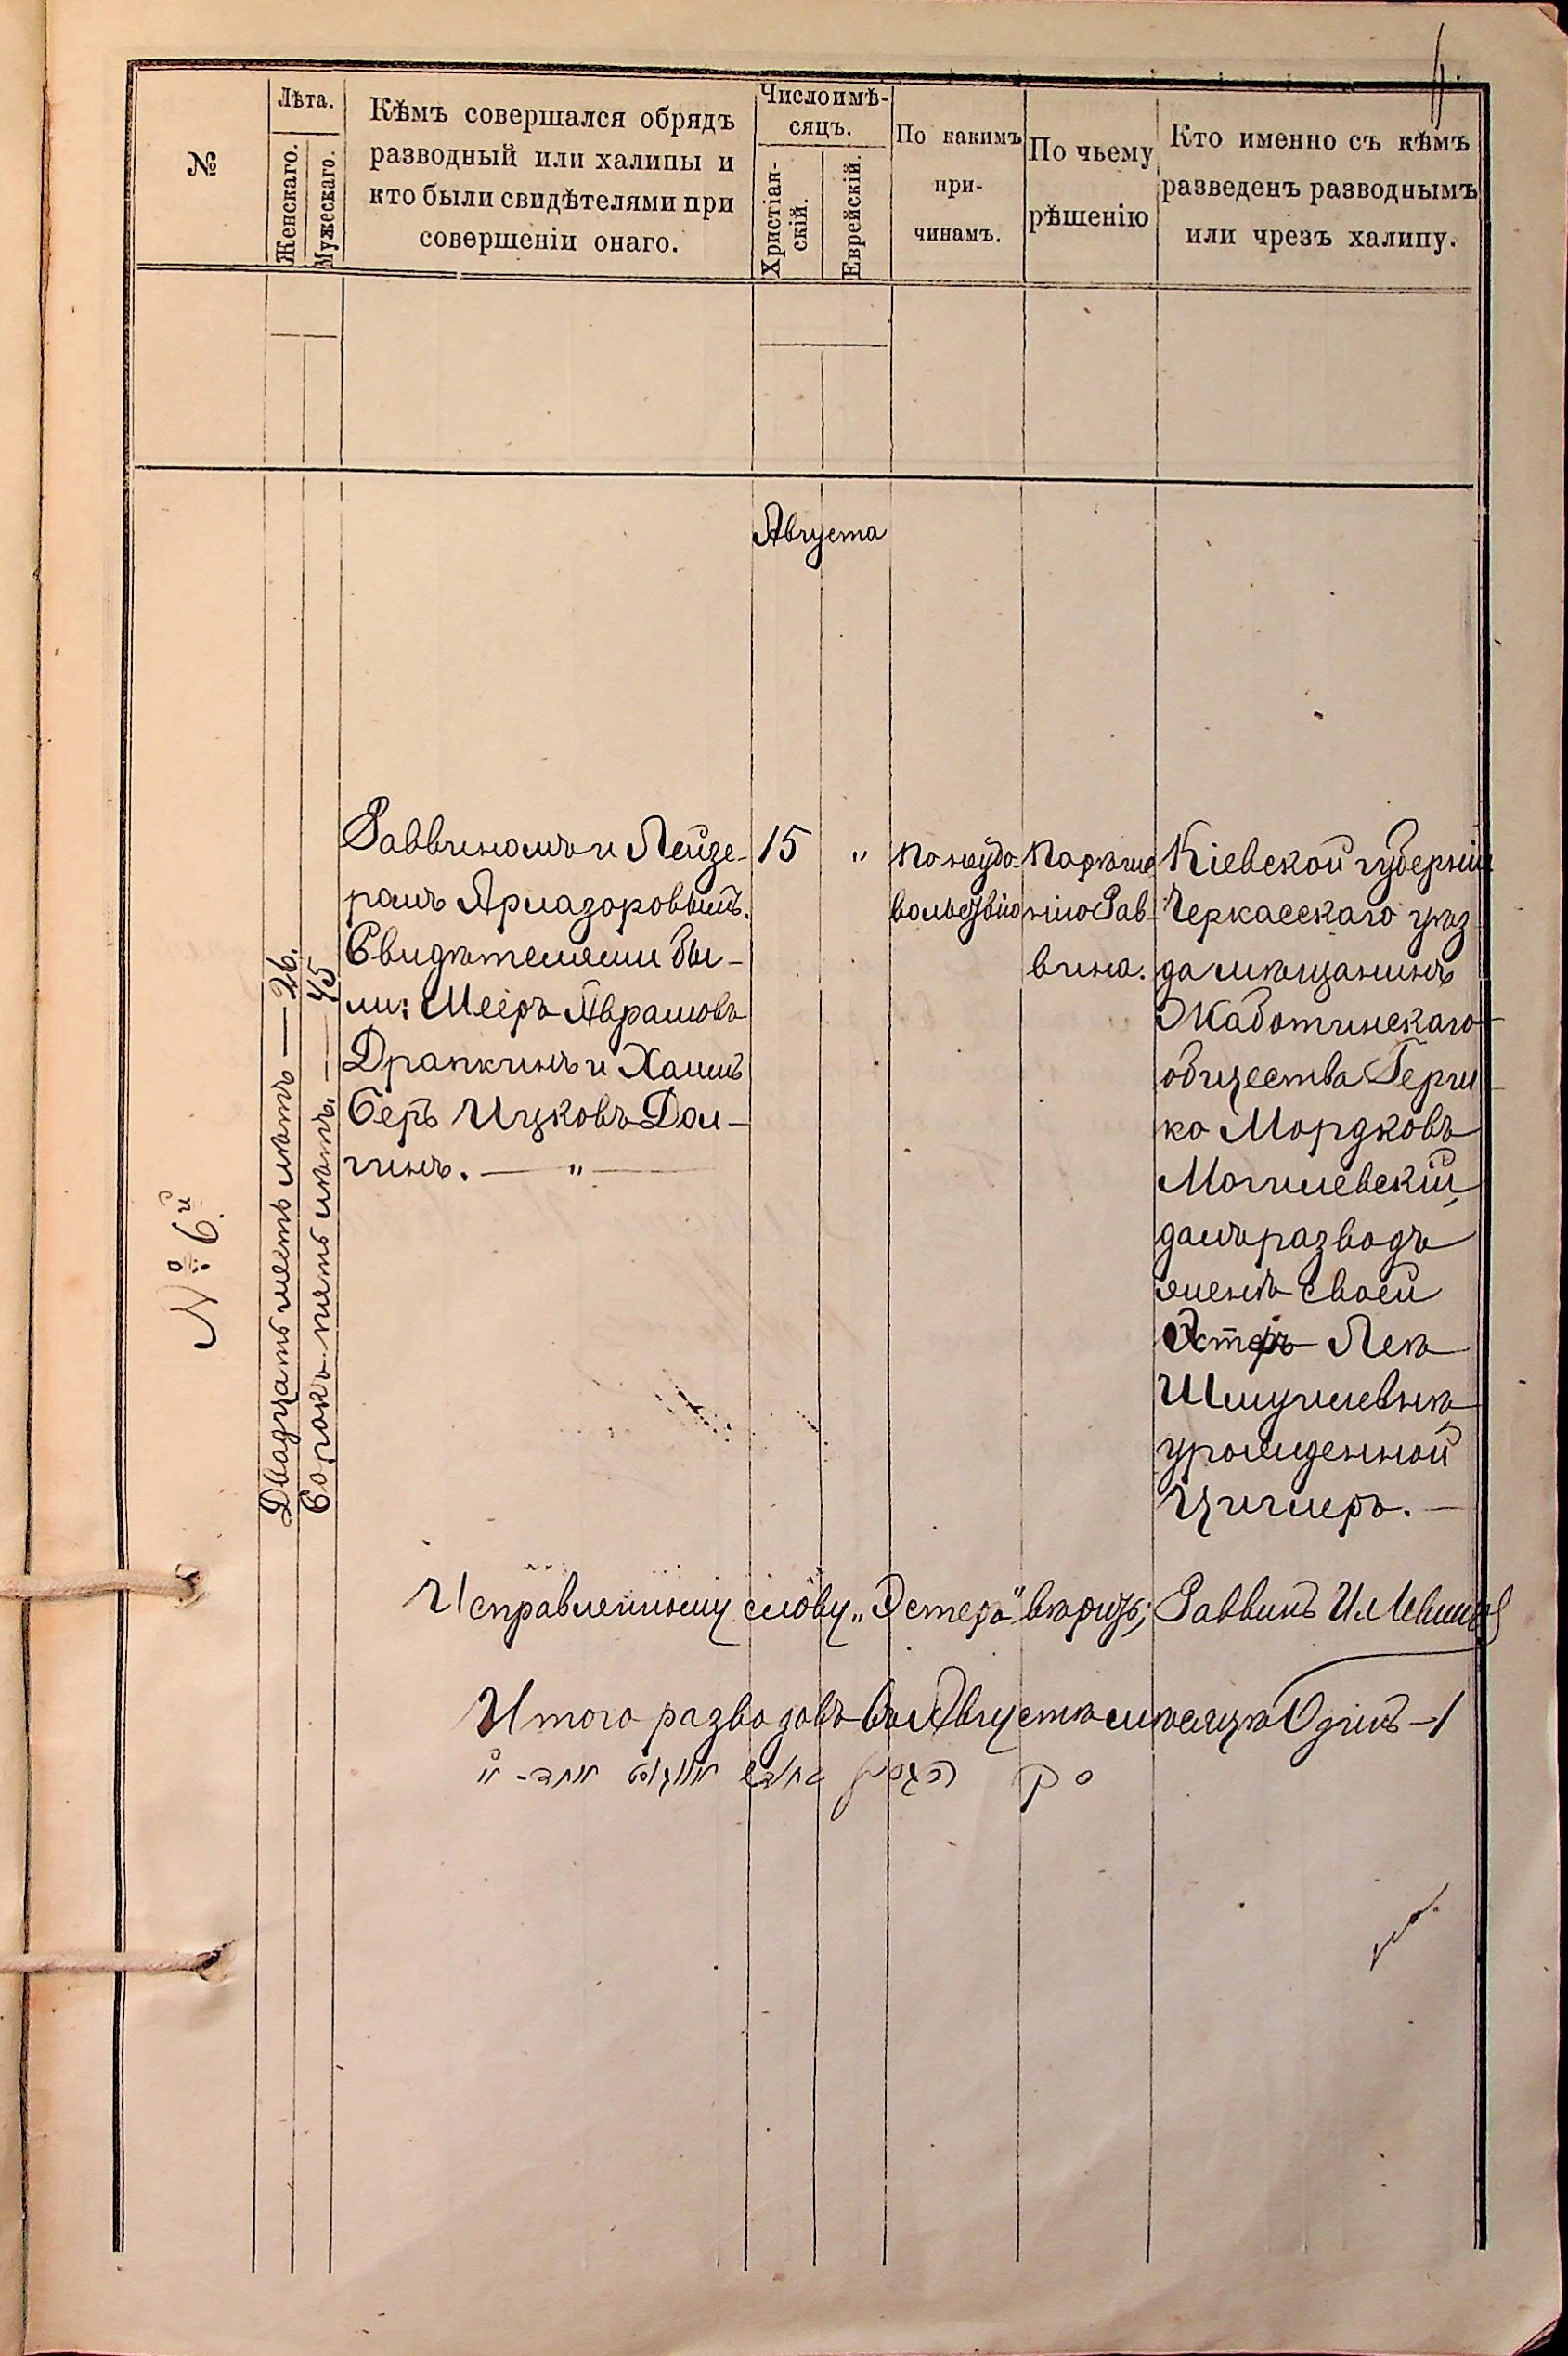 №
Лѣта.
Женскаго.
Мужескаго.
Кѣмъ совершался обрядъ
разводный или халицы и
кто были свидѣтелями при
совершеніи онаго.
Число и мѣ-
сяцъ.
Христіан-
скій.
Еврейскій.
По какимъ
при-
чинамъ.
По чьему
рѣшенію
Кто именно съ кѣмъ
разведенъ разводнымъ
или чрезъ халицу.
Августа
№ 6й
Двадцать шесть лѣтъ — 26.
Сорокъ пять лѣтъ. — 45
Раввиномъ и Лейзе-
ромъ
Свидѣтелями бы-
ли: Меіръ Аврамовъ
Драпкинъ и Хаимъ
Беръ Ицковъ Дол-
гинъ. — " —
15
"
По неудо-
вольствію
По рѣше
нію Рав-
вина.
Кіевской губерніи
Черкасскаго уѣз
да мѣщанинъ
Жаботинскаго
общества Герш
ко Мордковъ
Могилевскій,
далъ разводъ
женѣ своей
Эстеръ Леѣ
Шмулевнѣ
урожденной
Циглеръ. —
Исправленному слову „Эстеръ" вѣрить; Раввинъ
Итого разводовъ въ Августѣ мѣсяцѣ Одинъ — 1